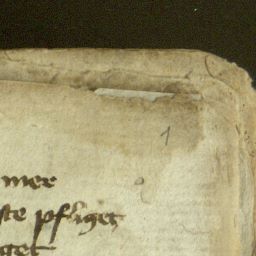 1
mer
ste pfliget
get